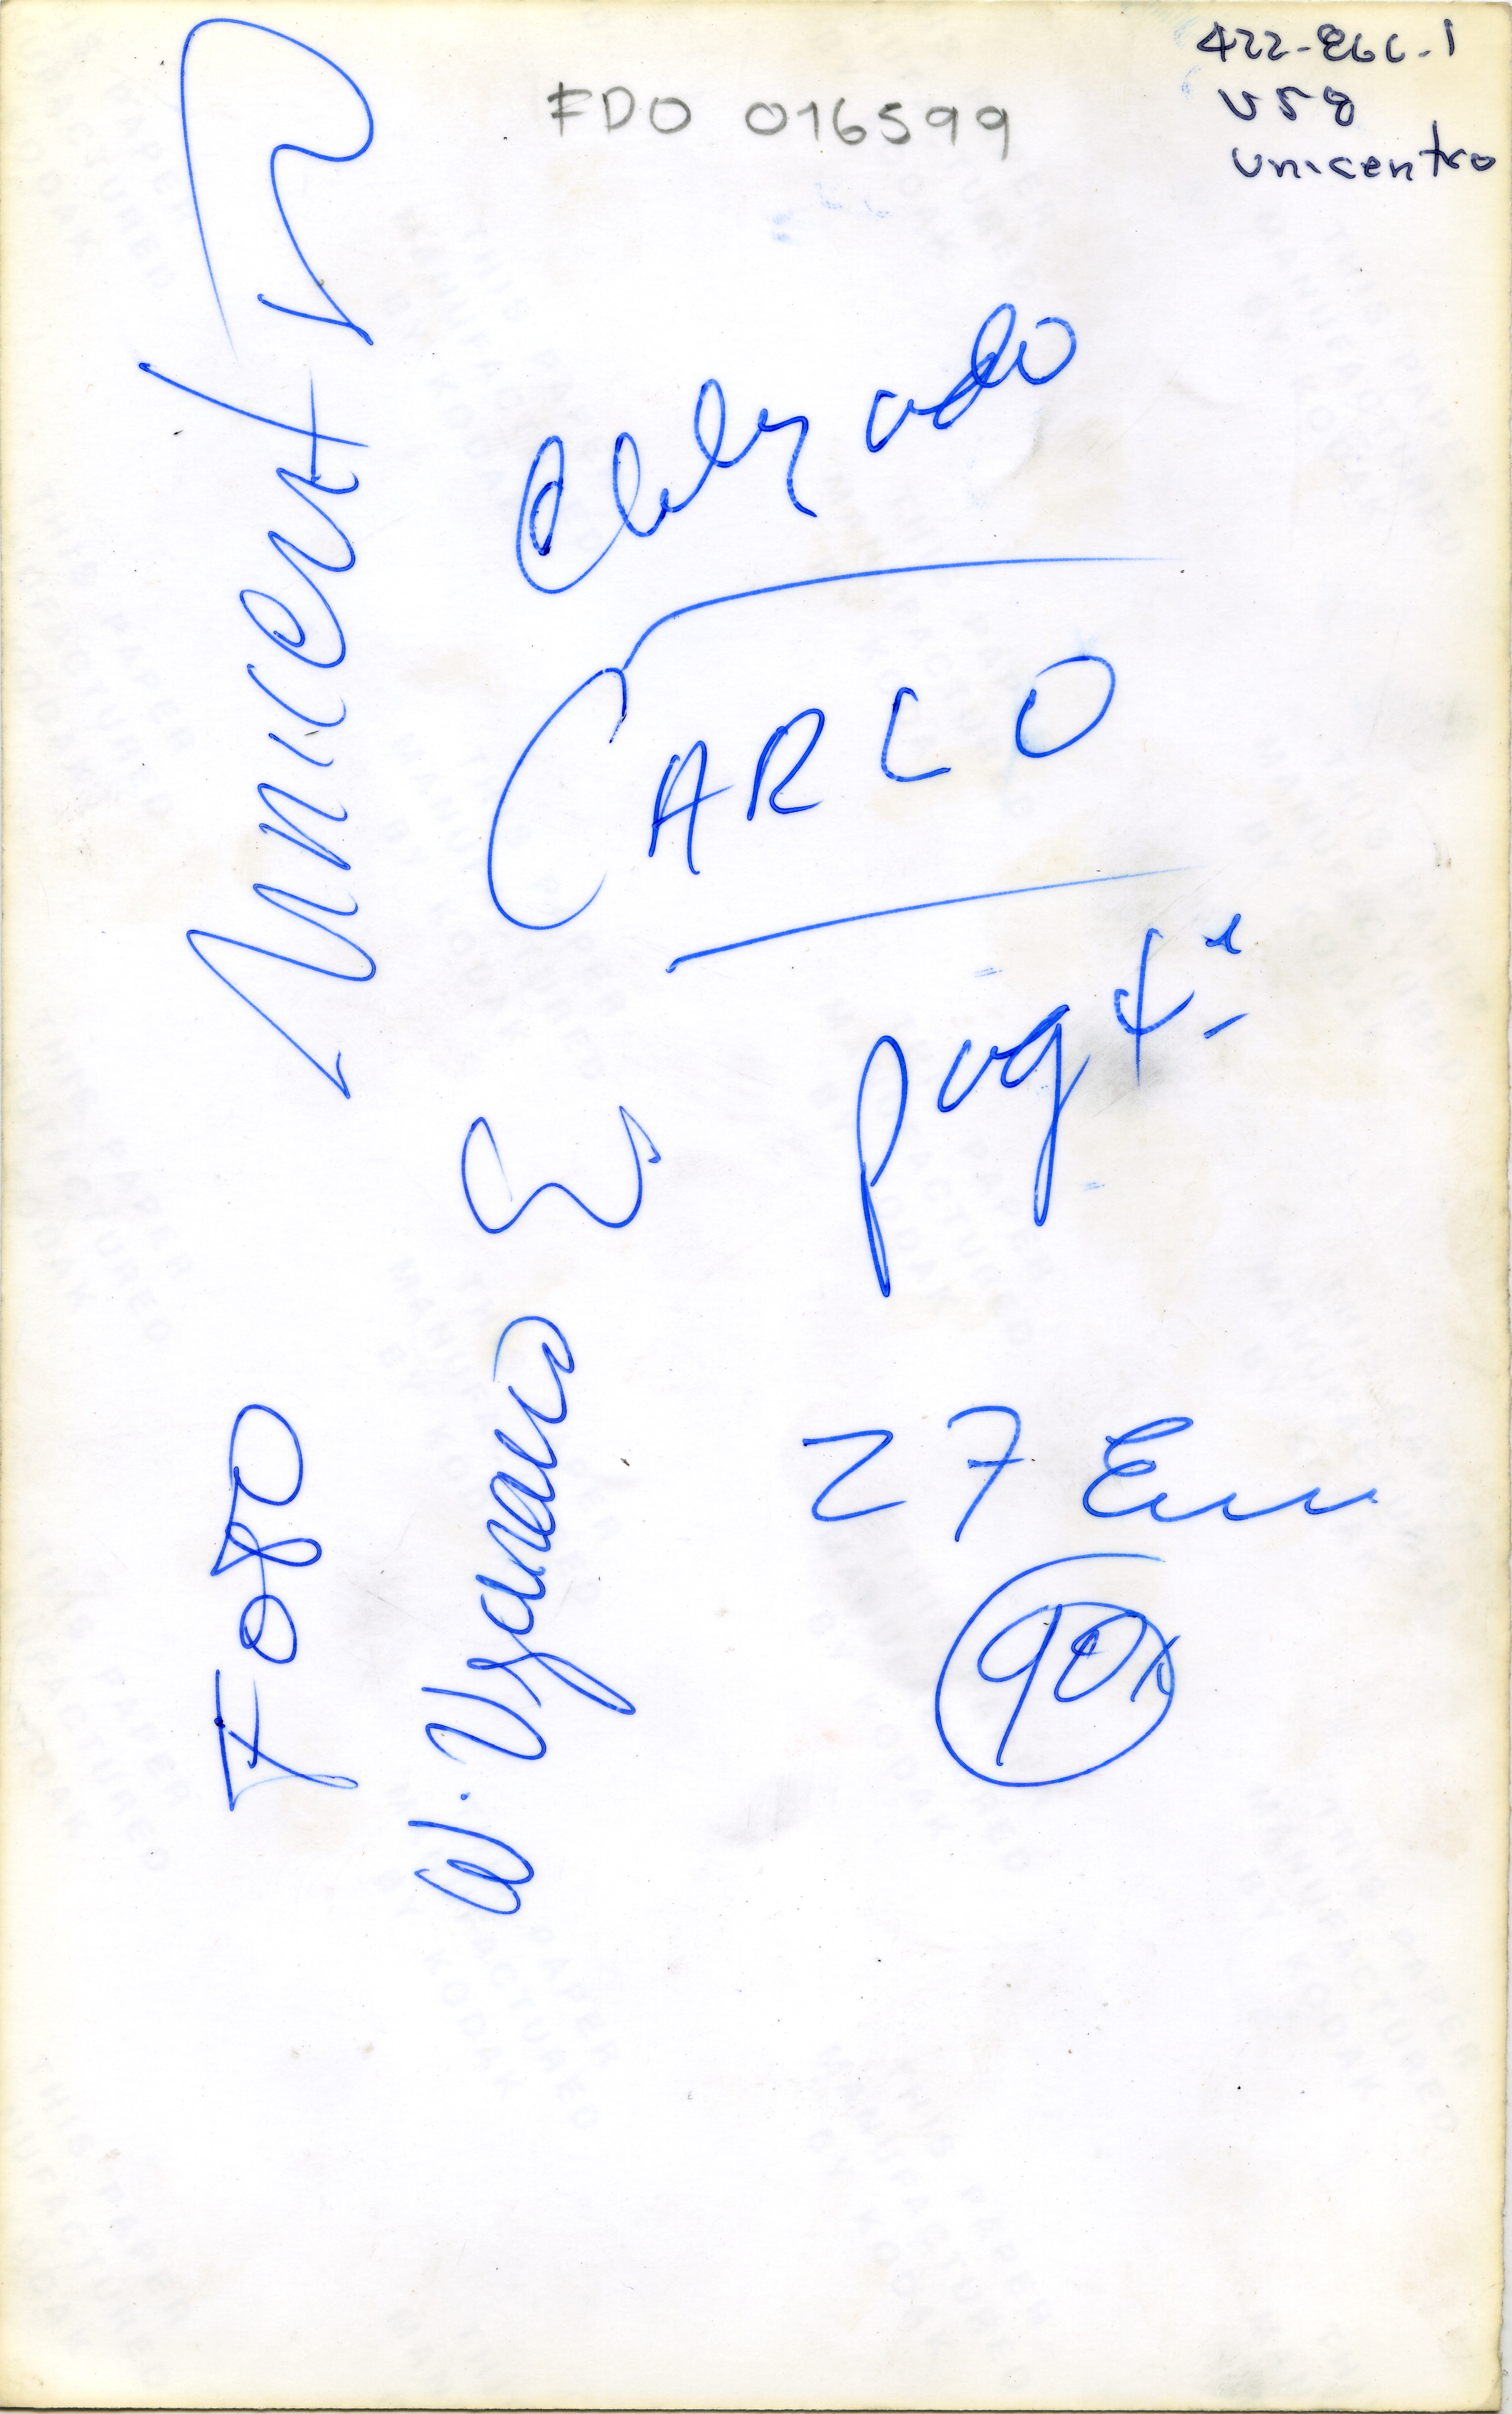 422-866-1
U58
unicentro
FDO 016599
Unicentro
Foto
W. Vizcaino E
CARLO
pag 4ª
27 Ene
90%
THIS PAPER
MANUFACTURED
BY KODAK